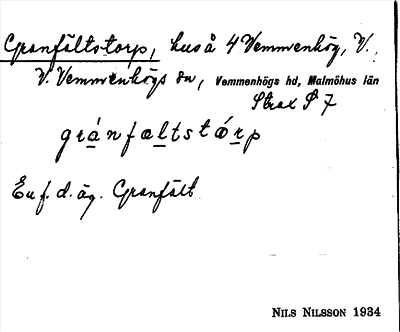 Granfältstorp, hus å 4 Vemmenhög, V.,
V. Vemmenhögs sn, Vemmenhögs hd, Malmöhus län
Strax S 7
gránfæltstórp
En f. d. äg. Granfält
NILS NILSSON 1934